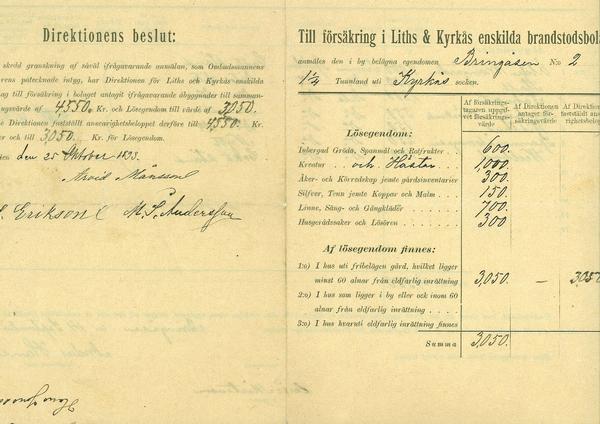 Direktionens beslut:
skedd granskning af såväl ifrågavarande anmälan, som Ombudsmannens
rens patecknade intyg, har Direktionen för Liths och Kyrkås enskilda
ag till försäkring i bolaget antagit ifrågavarande åbyggnader till samman-
ngsvärde af 4550. Kr. och Lösegendom till värde af 3050.
e Direktionen fastställt ansvarighetsbeloppet derföre till 4,550. Kr.
er och till 3050. Kr. för Lösegendom.
den 25 Oktober 1893.
Arvid Månsson
S. Erikson
M. P. Andersson
Till försäkring i Liths & Kyrkås enskilda brandstodsbola
anmäles den i by belägna egendomen Bringåsen N:o 2
1¼ Tunnland uti Kyrkås socken.
Af försäkrings-tagaren uppgif-vet försäkrings-värde
Af Direktionen antaget för-säkringsvärde
Af Direktion fastställdt ans-righetsbelop
Lösegendom:
Inbergad Gröda, Spanmål och Rotfrukter 600.
Kreatur och Hästar 1,000.
Åker- och Körredskap jemte gårdsinventarier 300.
Silfver, Tenn jemte Koppar och Malm 150.
Linne, Säng- och Gångkläder 700.
Husgerådssaker och Lösören 300
Af lösegendom finnes:
1:o) I hus uti fribelägen gård, hvilket ligger
minst 60 alnar från eldfarlig inrättning 3,050. — 3050
2:o) I hus som ligger i by eller ock inom 60
alnar från eldfarlig inrättning
3:o) I hus hvaruti eldfarlig inrättning finnes
Summa 3,050.